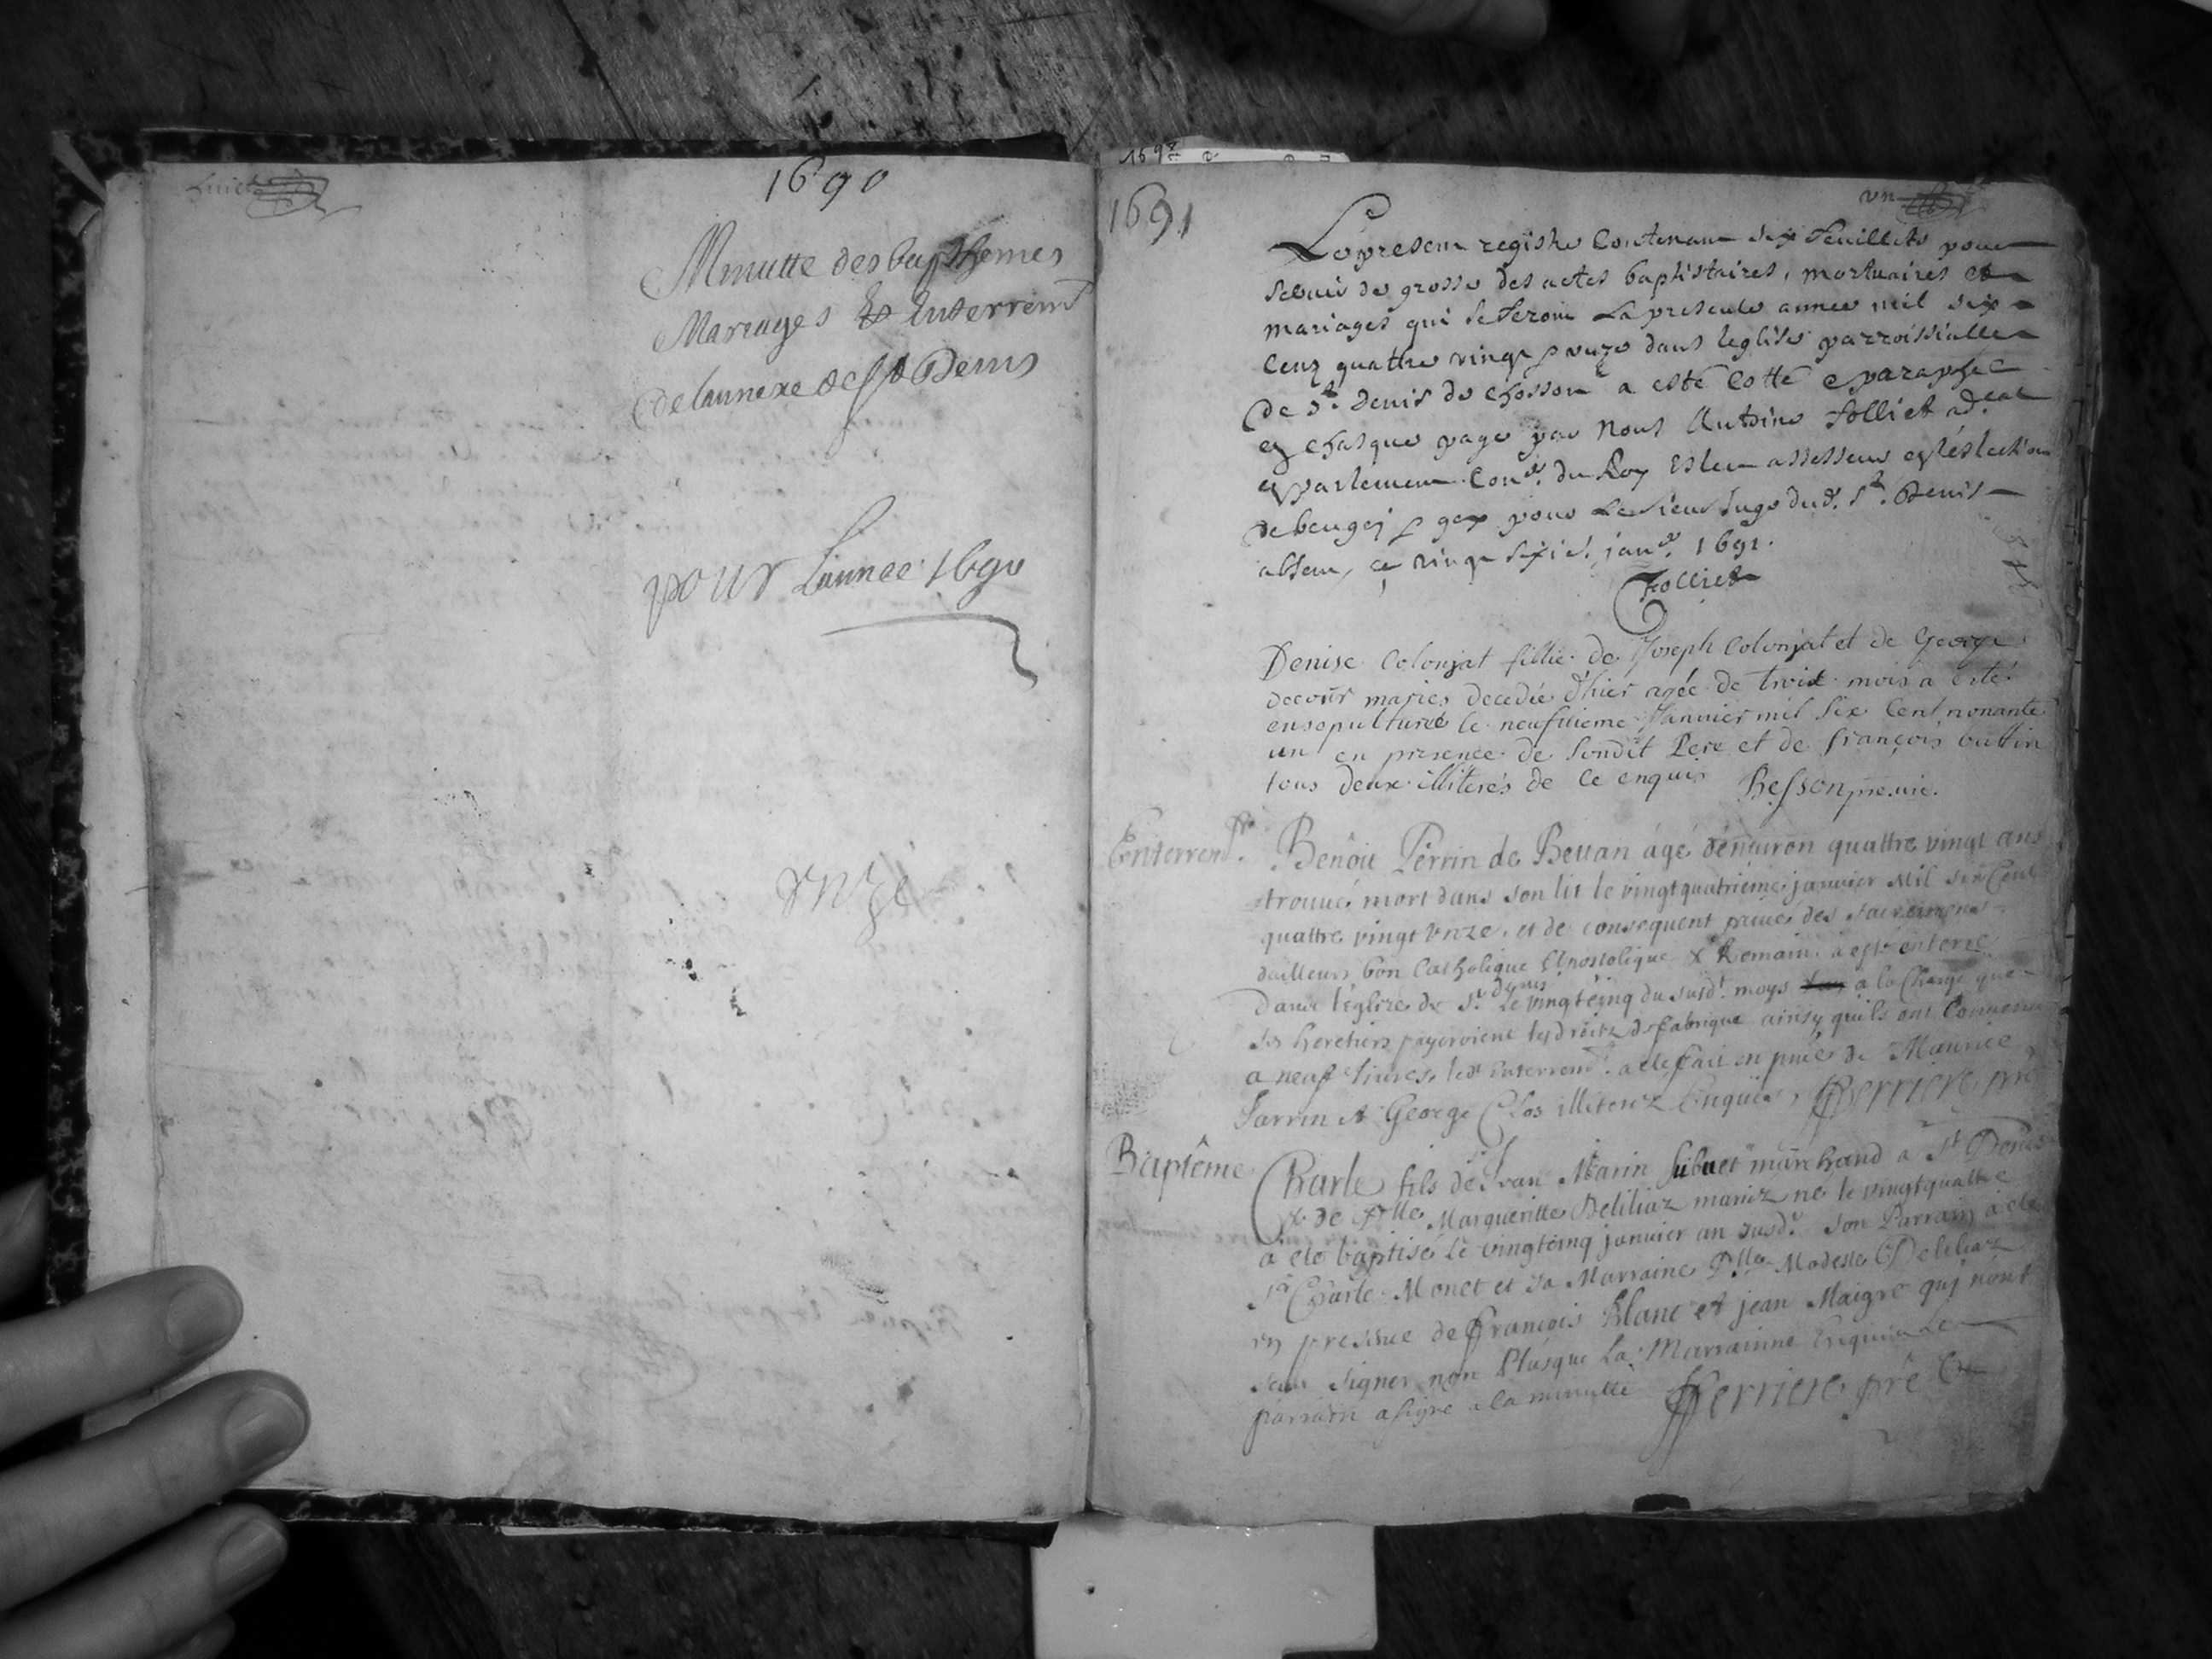 1690
Minutte des bapthemes
Mariages & Enterremt
de lannexe de St Denis
pour Lannee 1690
unze
1691
un
Le present registre Contenant six feuillets pour
servir de grosse des actes baptistaires, mortuaires et
mariages qui se feront La presente annee mil six
Cent quattre vingt & onze dans leglise parroissialle
De St. Denis de Chosson a esté Cotté & paraphé
en chasque page par Nous Antoine Folliet adcat
en parlement Coner. du Roy Esleu assesseur en léslection
de beugej & gex pour le sieur Juge dud. St. Denis
absent, ce vingt sixie. janr. 1691.
Folliet
Denise Colonjat fillie de Joseph Colonjat et de George
decour maries decedée d'hier agée de trois mois a esté
ensepulturée le neufuieme Januier mil six Cent nonante
un en presence de Sondit Pere et de françois buttin
tous deux illiterés de ce enquis Besson pre. vic.
Enterremt. Benoit Perrin de Bettan ágé dénuiron quattre vingt ans
trouué mort dans son lit le vingt quatrieme januier Mil six Cent
quattre vingt unze, et de consequent priué des sacremens
dailleurs bon Catholique Apostolique & Romain. a esté enterré
Dans l'églize de St. denis le vingtcinq du susdt. moys a la Charge que
ses heretiers payeroient les droits de fabrique ainsy quils ont Conuenu
a neuf liures, ledt Enterremt. a eté fait en pnce de Maurice
Sarrin et George Clos illiterez Enquis, fferriere pre
Baptême Charle fils de Sr Jvan Marin Subuet marchand a St Denis
& de Dlle Margueritte Deliliaz mariez né le vingtquattre
a eté baptisé le vingtcinq januier an susdt. son Parrain a eté
Sr Charle Monet et sa Marraine Dlle Modeste Deliliaz
en presence de François Blanc et jean Maigre qui nont
sceu signer non Plusque la Marrainne Enquis Le
parrain a signé a la minutte fferriere pre